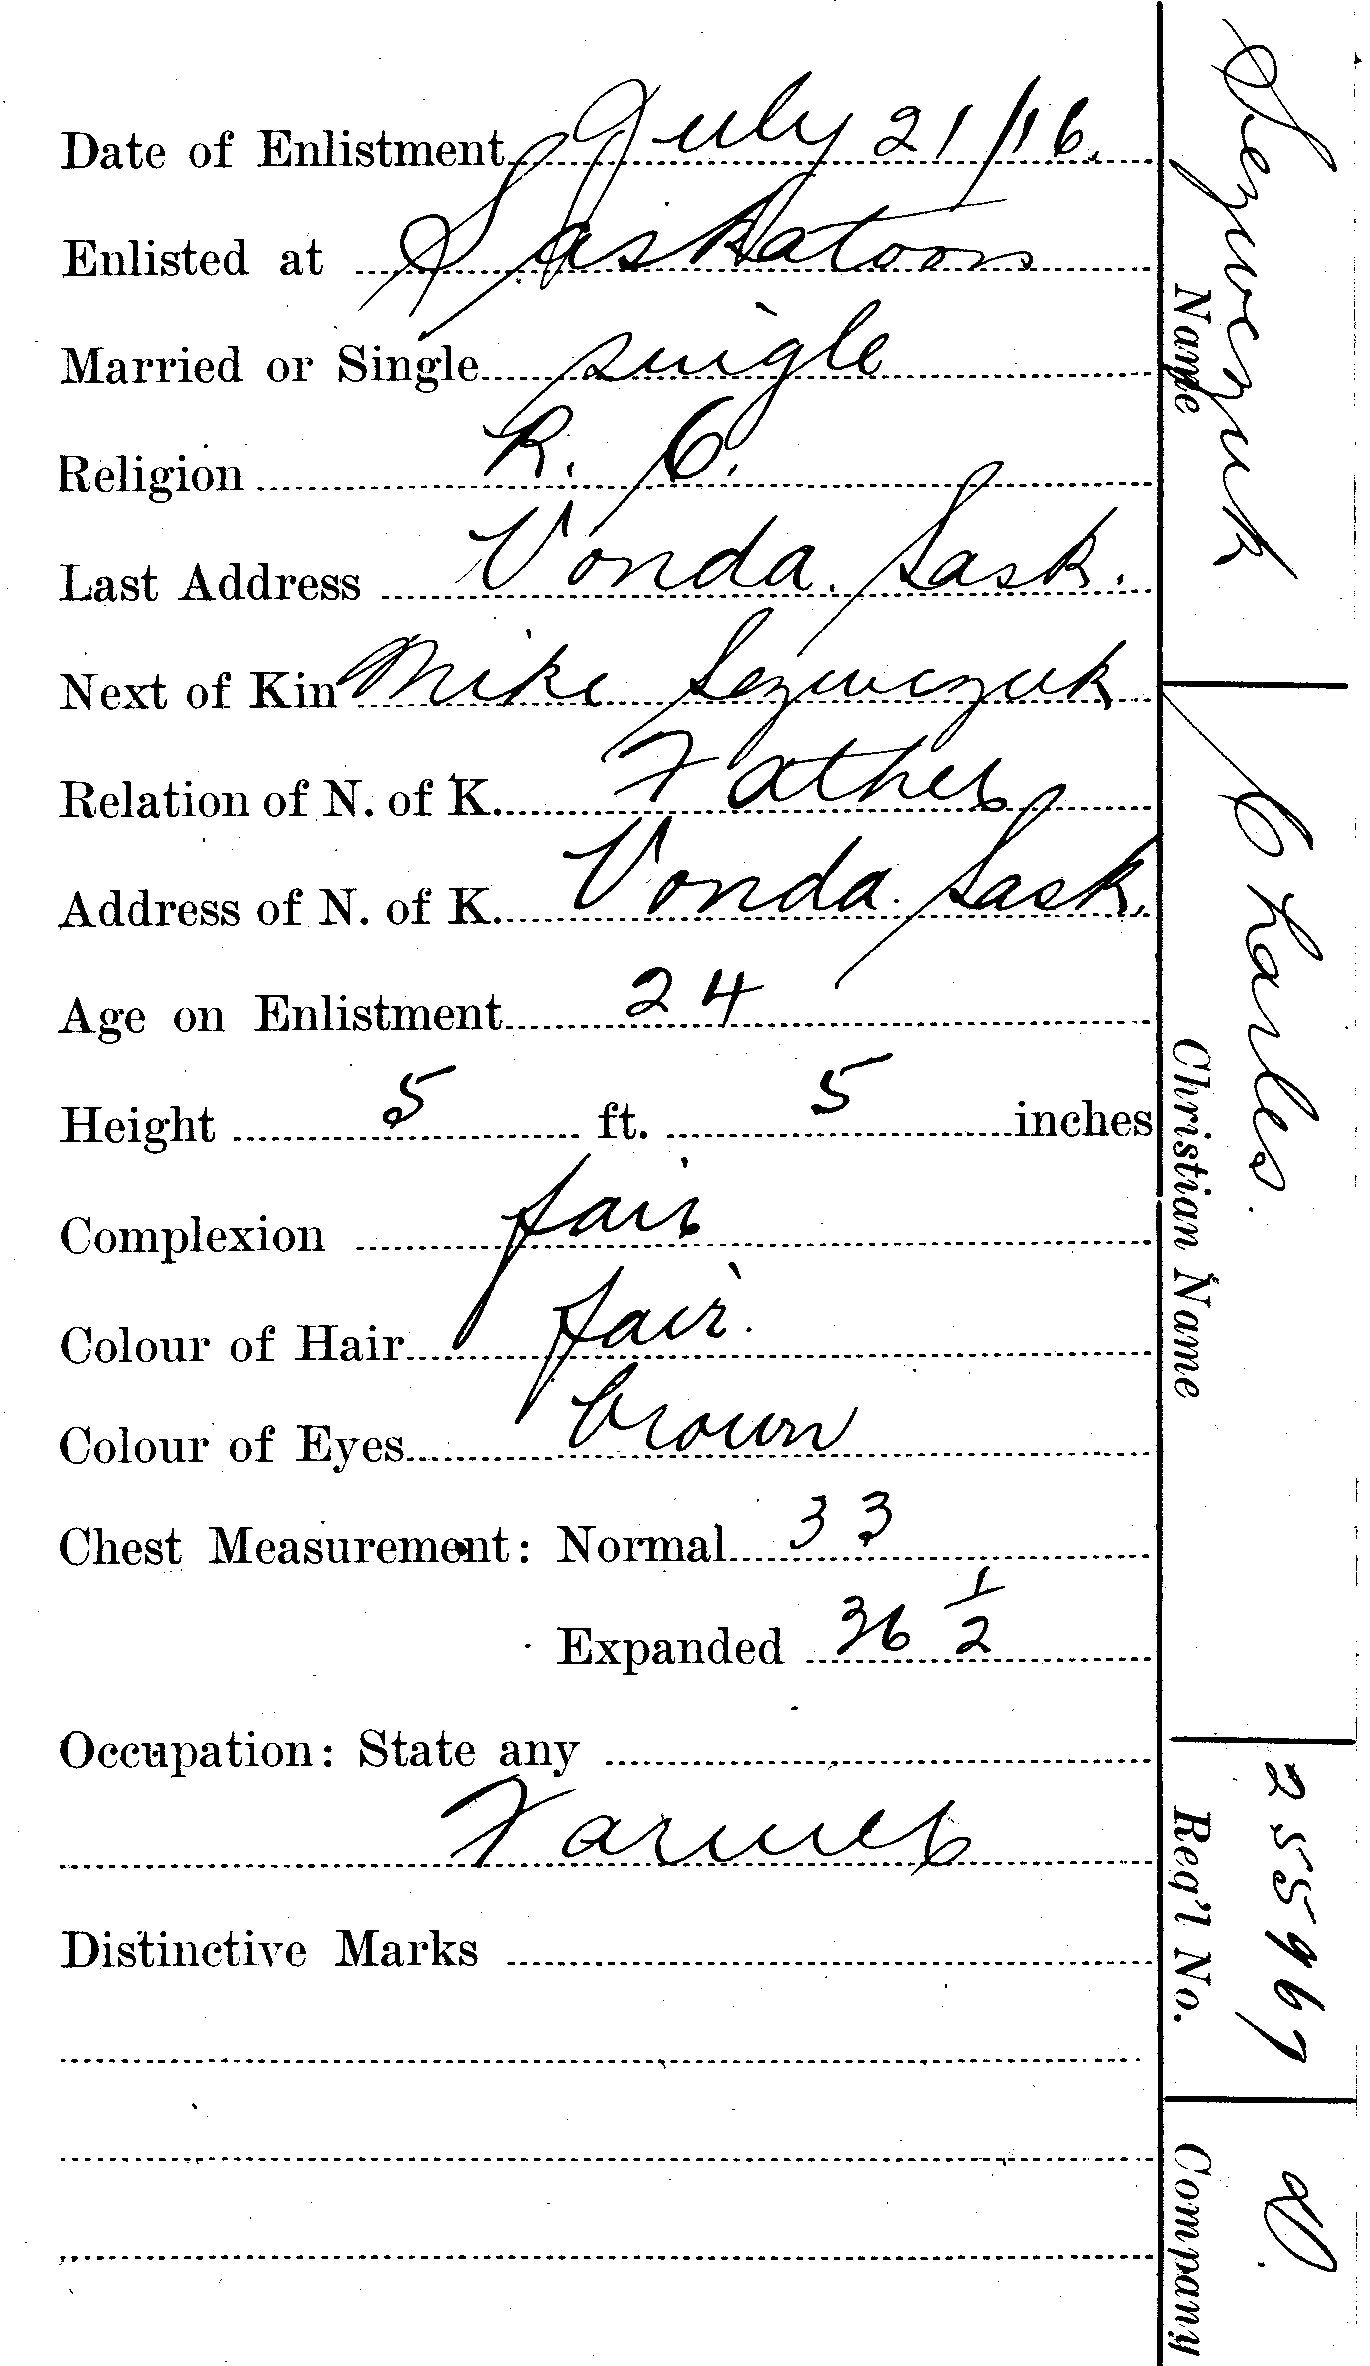 Date of Enlistment July 21/16.
Enlisted at Saskatoon
Married or Single single
Religion R. C.
Last Address Vonda. Sask.
Next of Kin Mike Sezwczuk
Relation of N. of K. Father
Address of N. of K. Vonda. Sask.
Age on Enlistment 24
Height 5 ft. 5 inches
Complexion fair
Colour of Hair fair.
Colour of Eyes brown
Chest Measurement: Normal 33
Expanded 36 1/2
Occupation: State any
Farmer
Distinctive Marks
Sezwczuk
Name
Charles.
Christian Name
255967
Reg'l No.
D.
Company